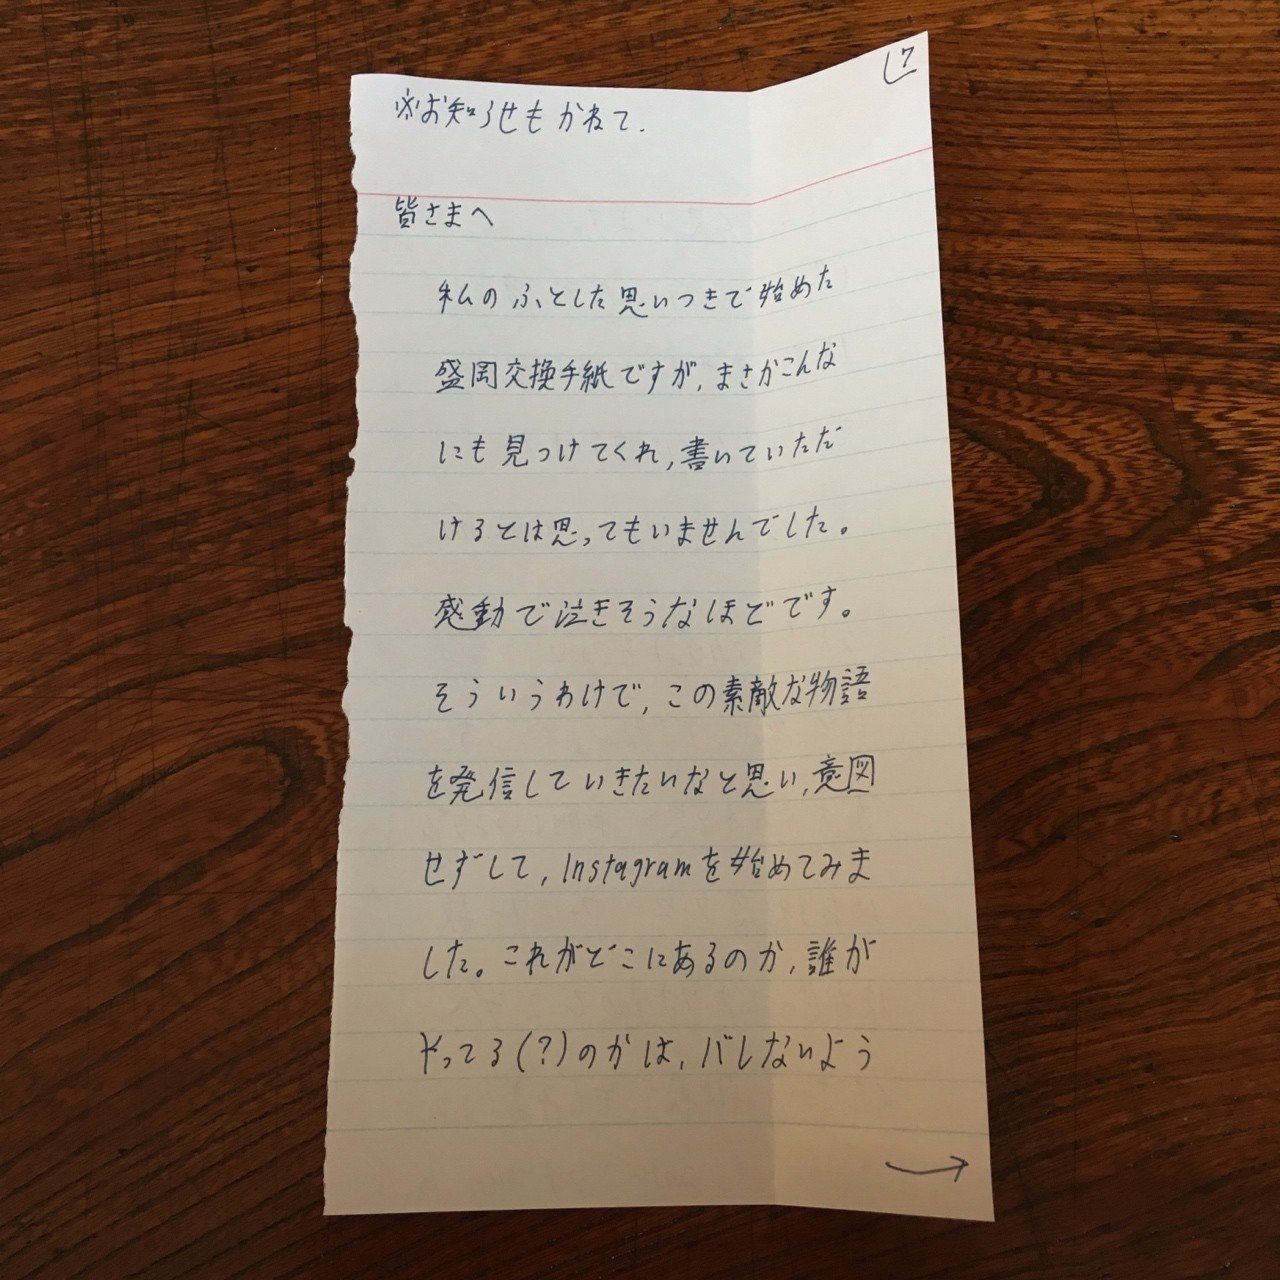 7
※お知らせもかねて.
皆さまへ
私のふとした思いつきで始めた
盛岡交換手紙ですが,まさかこんな
にも見つけてくれ,書いていただ
けるとは思ってもいませんでした。
感動で泣きそうなほどです。
そういうわけで,この素敵な物語
を発信していきたいなと思い,意図
せずして,Instagramを始めてみま
した。これがどこにあるのか,誰が
やってる(?)のかは,バレないよう
→